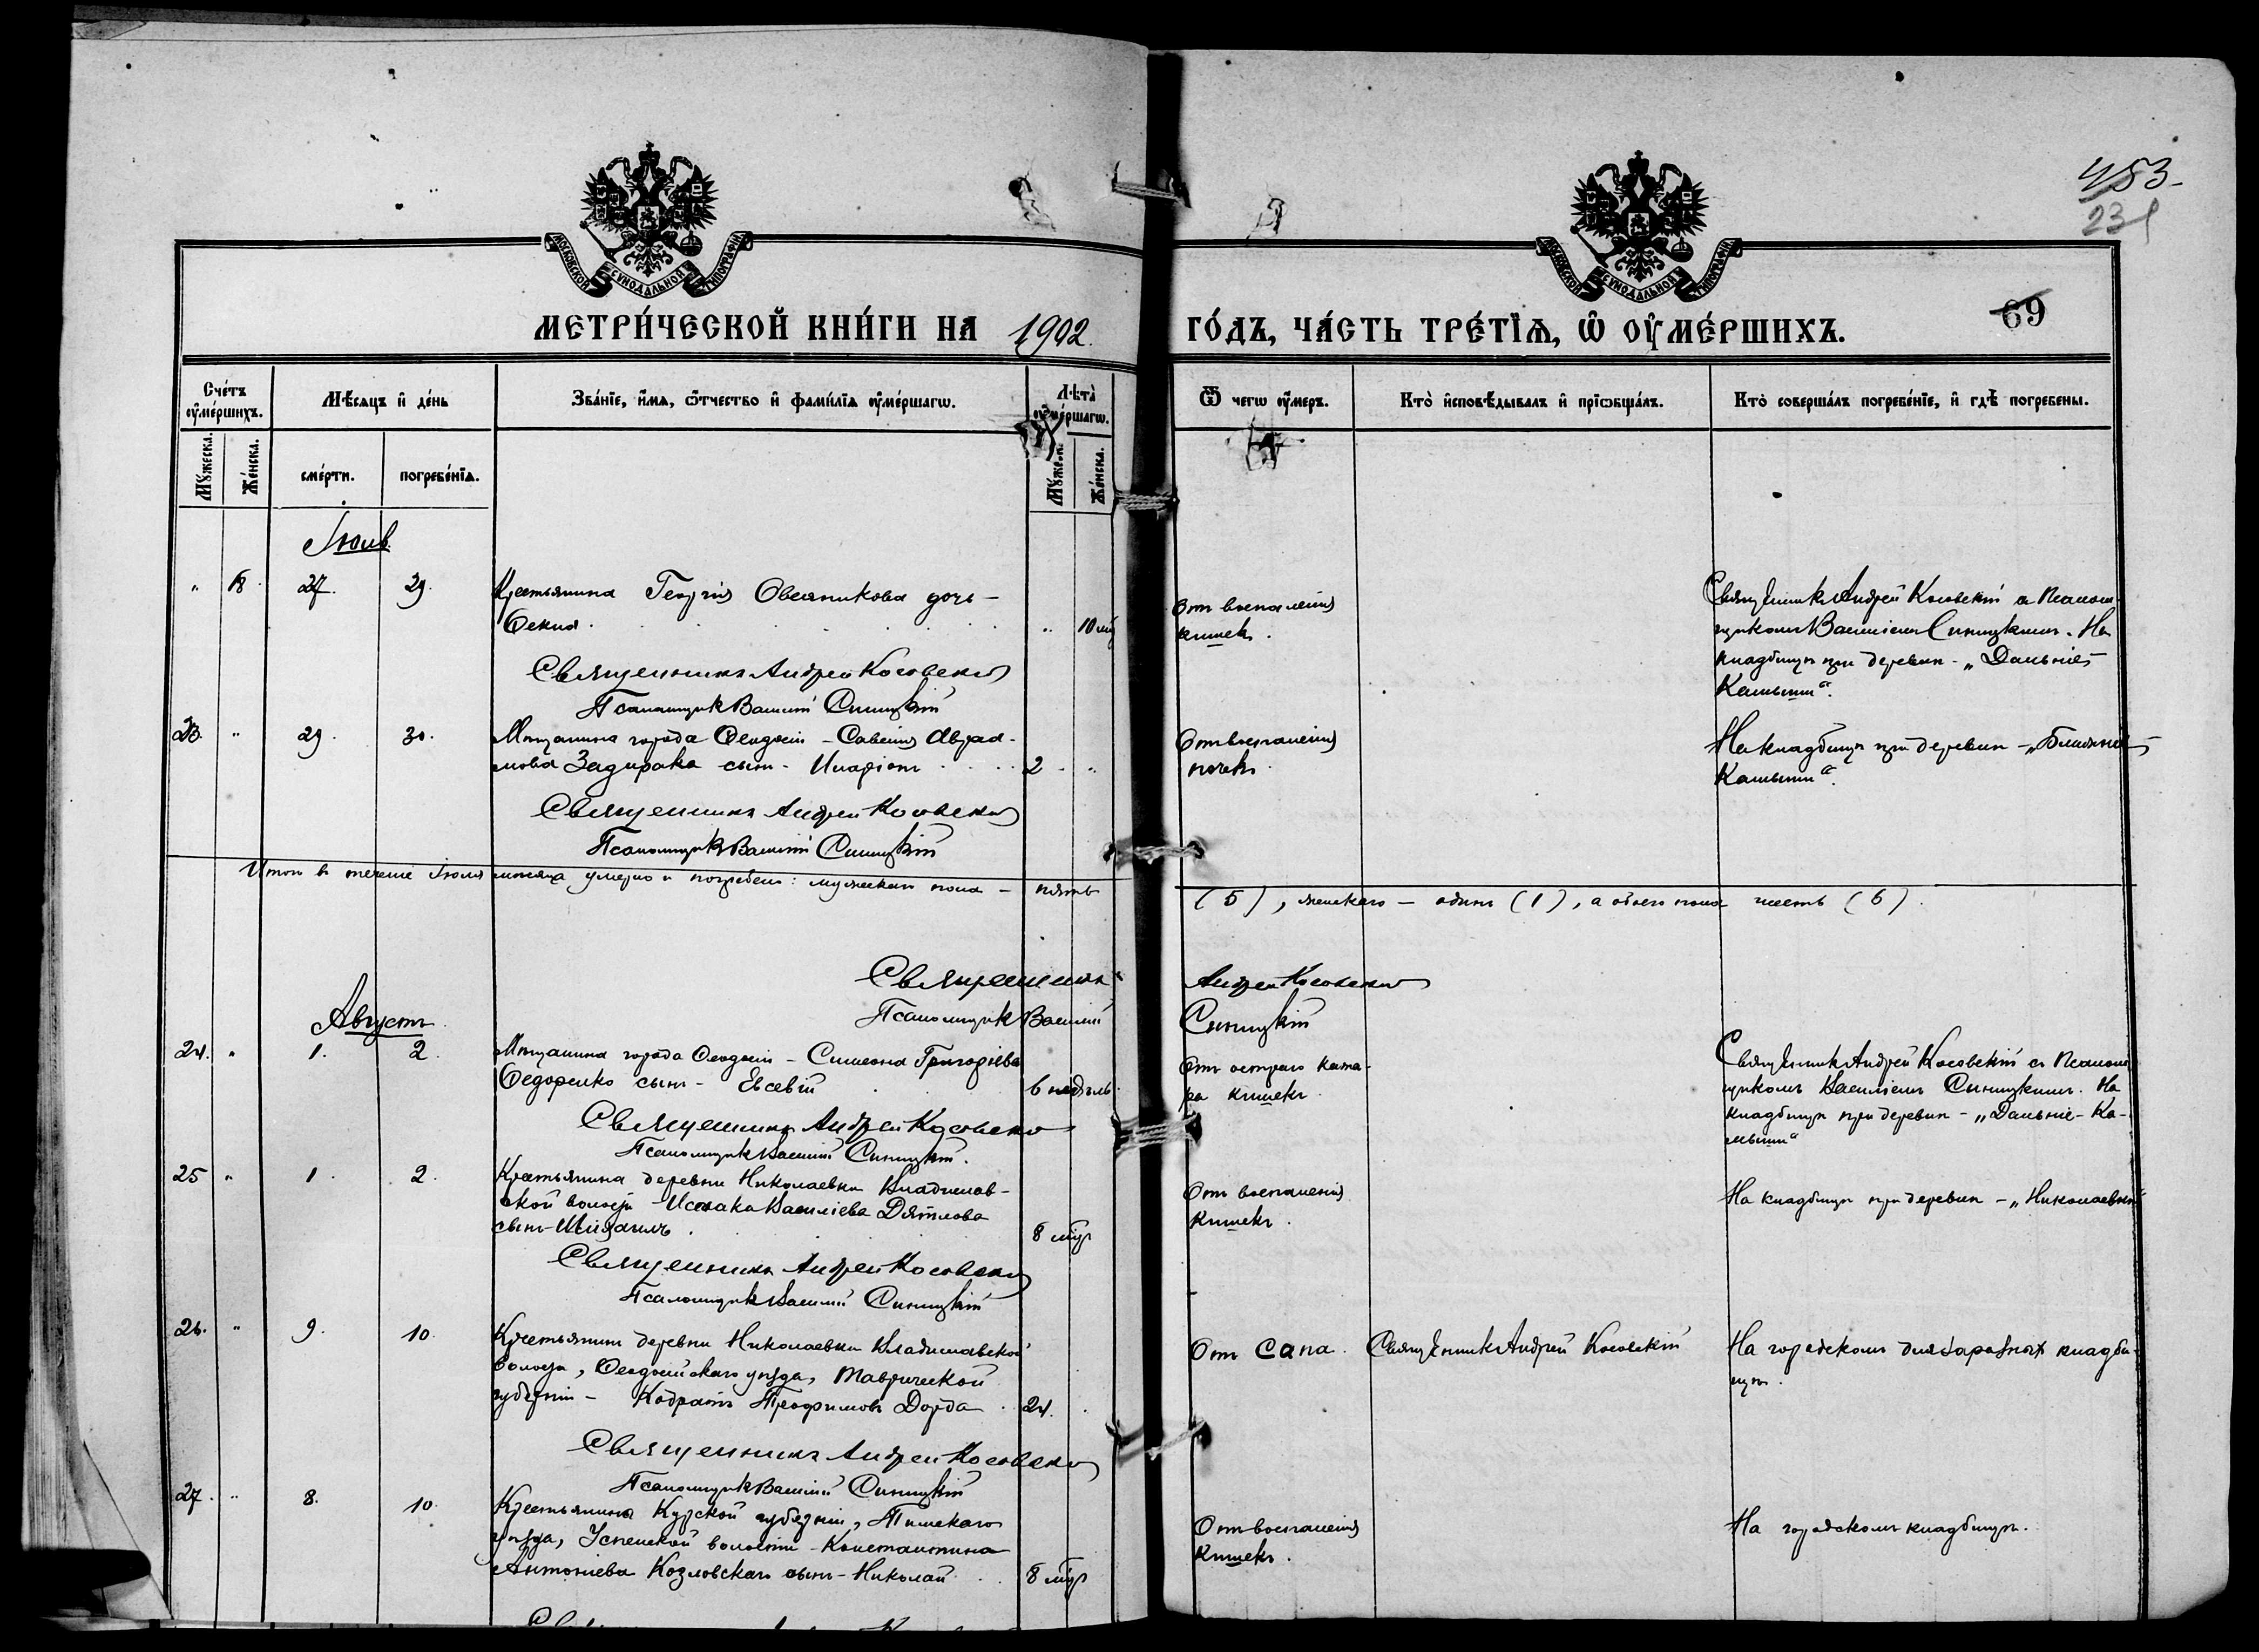 453
231
МОСКОВСКОЙ СУНОДАЛЬНОЙ ТИПОГРАФІИ
МОСКОВСКОЙ СУНОДАЛЬНОЙ ТИПОГРАФІИ
69
МЕТРИ́ЧЕСКОЙ КНИ́ГИ НА 1902. ГО́ДЪ, ЧА́СТЬ ТРЕ́ТІѦ, Ѡ ОУМЕ́РШИХЪ.
Сче́тъ оуме́ршихъ.
Мѣ́сяцъ и де́нь
Зва́ніе, и́мя, о́тчество и фами́лія оуме́ршагѡ.
Лѣта̀ оуме́ршагѡ.
Ѿ чегѡ оу́меръ.
Кто̀ исповѣ́дывалъ и пріѡбща́лъ.
Кто̀ соверша́лъ погребе́ніе, и гдѣ̀ погребены.
Му́жеска.
Же́нска.
сме́рти.
погребе́нія.
Му́жеска.
Же́нска.
Іюль.
" 18. 27. 29.
Крестьянина Георгія Овсяникова дочь -
Ѳекла. " 10 мц
Отъ воспаленія
кишекъ.
Священникъ Андрей Косовскій съ Псаломщикомъ Василіемъ Синицкимъ. На
кладбищѣ при деревни - „Дальніе
Камыши".
Священникъ Андрей Косовскій
Псаломщикъ Василій Синицкій
23. " 29. 30.
Мѣщанина города Ѳеодосіи - Савелія Авраа-
мова Задирака сынъ - Иларіонъ 2 "
Отъ воспаленія
почекъ.
На кладбищѣ при деревни - „Ближніе
Камыши".
Священникъ Андрей Косовскій
Псаломщикъ Василій Синицкій
Итого въ теченіе Іюля мѣсяца умерло и погребено: мужескаго пола - пять (5), женскаго - одинъ (1), а обоего пола шесть (6).
Священникъ Андрей Косовскій
Псаломщикъ Василій Синицкій
Августъ
24. " 1. 2.
Мѣщанина города Ѳеодосіи - Симеона Григоріева
Ѳедоренко сынъ - Евсевій 6 недѣль
Отъ остраго ката-
ра кишекъ.
Священникъ Андрей Косовскій съ Псалом-
щикомъ Василіемъ Синицкимъ. На
кладбищѣ при деревни - „Дальніе - Ка-
мыши"
Священникъ Андрей Косовскій
Псаломщикъ Василій Синицкій.
25 " 1. 2.
Крестьянина деревни Николаевки Владислав-
ской волости Исаака Василіева Дятлова
сынъ - Михаилъ. 8 мцѣ
Отъ воспаленія
кишекъ.
На кладбищѣ при деревни - „Николаевкѣ
Священникъ Андрей Косовскій
Псаломщикъ Василій Синицкій
26. " 9. 10.
Крестьянинъ деревни Николаевки Владиславской
волости, Ѳеодосійскаго уѣзда, Таврической
губерніи - Кодратъ Трофимовъ Дорда 24.
Отъ Сапа.
Священникъ Андрей Косовскій
На городскомъ для заразныхъ кладби-
щѣ.
Священникъ Андрей Косовскій
Псаломщикъ Василій Синицкій
27. " 8. 10.
Крестьянина Курской губерніи, Тимскаго
уѣзда, Успенской волости - Константина
Антоніева Козловскаго сынъ - Николай 8 мцѣ
Отъ воспаленія
кишекъ.
На городскомъ кладбищѣ.